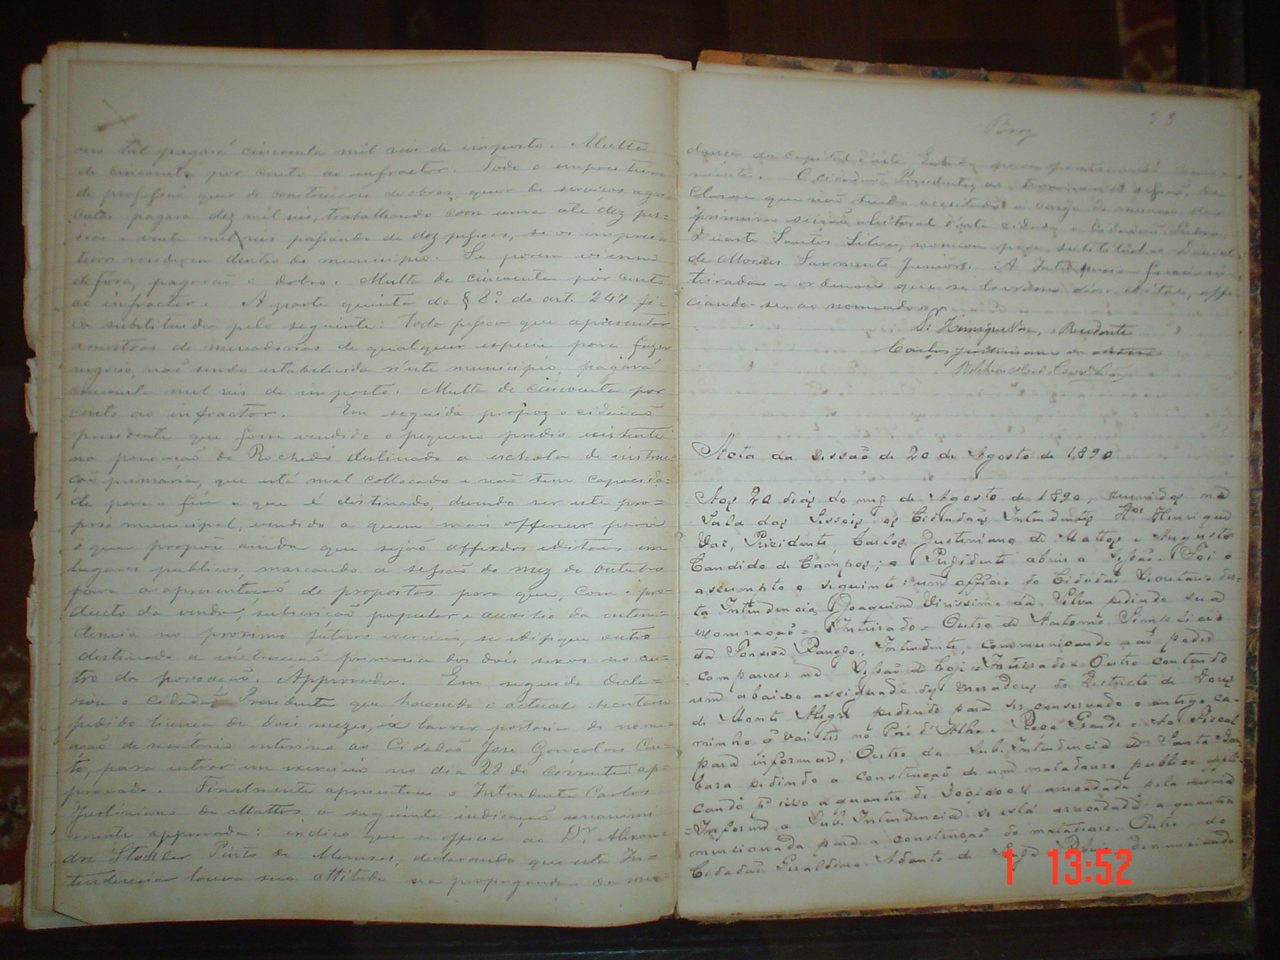 em tal pagará cincoenta mil reis de imposto. Multa
de cincoenta por cento ao infractor. Todo o empreiteiro
de profissão quer de construcção de obras, quer de serviços agri-
pagará dez mil reis, trabalhando com uma até dez pes-
soas e vinte mil reis passando de dez pessoas, se os emprei-
teiros residirem dentro do municipio. Se porem vierem
de fóra, pagarão o dobro. Multa de cincoenta por cento
ao infractor. A parte quinta do § 8º do art. 247 fi-
ca substituida pelo seguinte: Toda pessoa que apresentar
amostras de mercadorias de qualquer especie para fazer
negocio, não sendo estabelecida n'este municipio, pagará
cincoenta mil reis de imposto. Multa de cincoenta por
cento ao infractor. Em seguida propoz o cidadão
presidente que fosse vendido o pequeno predio existente
na povoação de Rochedo destinado a eschola de instruc-
ção primaria, que está mal collocado e não tem capacida-
de para o fim a que é destinado, devendo ser este pro-
prio municipal, vendido a quem mais offerecer para
o que propoz ainda que sejão affixados editaes em
lugares publicos, marcando a sessão do mez de outubro
para a apresentação de propostas para que, com o pro-
ducto da venda, subscripção popular e auxilio da inten-
dencia no proximo futuro exercicio, se edifique outro
destinado a instrucção primaria dos dois sexos no cen-
tro da povoação. Approvado. Em seguida decla-
rou o cidadão Presidente que havendo o actual
pedido licença de dois mezes, ia lavrar portaria de nome-
ação de interino ao Cidadão José Gonçalves Cou-
to, para entrar em exercicio no dia 28 do corrente, ap-
provado. Finalmente apresentou o Intendente Carlos
Justiniano de Mattos, a seguinte indicação unanime-
mente approvada: indico que se officie ao Dr. Alexan-
dre Stockler Pinto de Menezes, declarando que esta In-
tendencia louva sua attitude na propaganda da mu-
73
dança da Capital d'este Estado para
O cidadão Presidente, ao terminar a sessão, de-
clarou que não tendo acceitado o cargo de mesario da
primeira secção eleitoral d'esta cidade o Cidadão Pedro
Duarte Santos Silva, nomeou para substituil-o
de Moraes Sarmento Junior. A Intendencia ficou in-
teirada e ordenou que se lavrasse offi-
ciando-se ao nomeado.
Dr. Henrique Vaz, Presidente
Carlos Justiniano de Mattos
Acta da sessão de 20 de Agosto de 1890
Aos 20 dias do mez de Agosto de 1890, reunidos na
Sala das Sessões os Cidadãos Intendentes Drs Henrique
Vaz, Prezidente, Carlos Justiniano de Mattos e Augusto
Candido de Campos; o Prezidente abriu a Sessão. Foi o
assumpto o seguinte: um officio do Cidadão Secretario des-
ta Intendencia Joaquim Virissimo da Silva pedindo sua
exoneração. Inteirado. Outro de Antonio Simplicio
da Fonseca Rangel, Intendente, communicando não poder
comparecer na Sessão de hoje. Inteirado. Outro contendo
um abaixo assignado dos moradores do Destricto de Dores
do Monte Alegre pedindo para ser conservado o antigo ca-
minho q' vai ter no Páo d'Alho e Roça Grande. Ao Fiscal
para informar. Outro da Sub. Intendencia de Santa Bar-
bara pedindo a construcção de um matadouro publico appli-
cando p.a isso a quantia de arrecadada pela mesma
Informe a Sub. Intendencia se está arrecadada a quantia
mencionada para a construcção do matadouro. Outro do
Cidadão Geraldino Adanto de denunciando
1 13:52